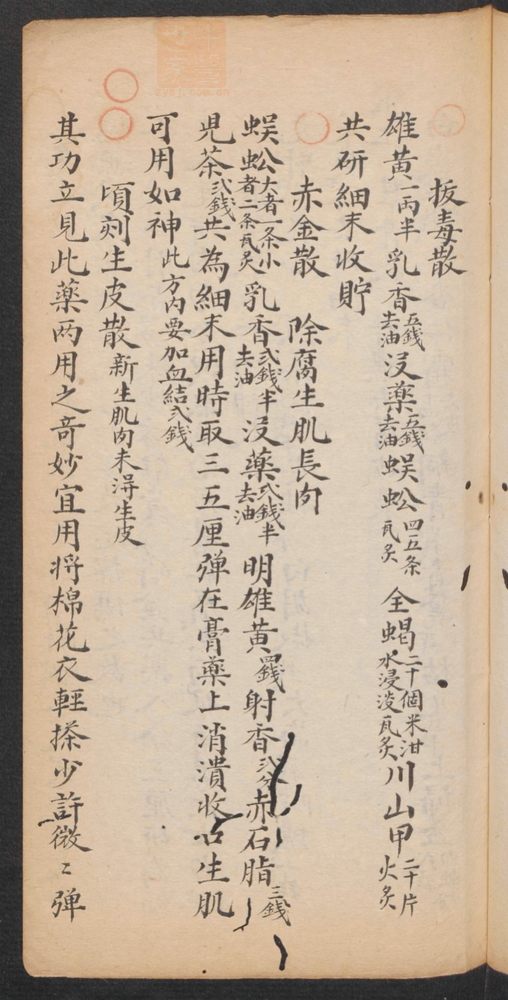 拔毒散
雄黃一両半 乳香五錢去油 沒藥五錢去油 蜈蚣四五条瓦炙 全蝎二十個米泔水浸淡瓦炙 川山甲二十片火炙
共研細末收貯
赤金散 除腐生肌長肉
蜈蚣大者一条小者二条瓦炙 乳香弍錢半去油 沒藥弍錢半去油 明雄黃四錢 射香弍分 赤石脂三錢
児茶弍錢 共為細末用時取三五厘弾在膏藥上消潰收口生肌
可用如神此方內要加血結弍錢
頃刻生皮散 新生肌肉未淂生皮
其功立見此藥两用之奇妙宜用将棉花衣輕搽少許微〻弾